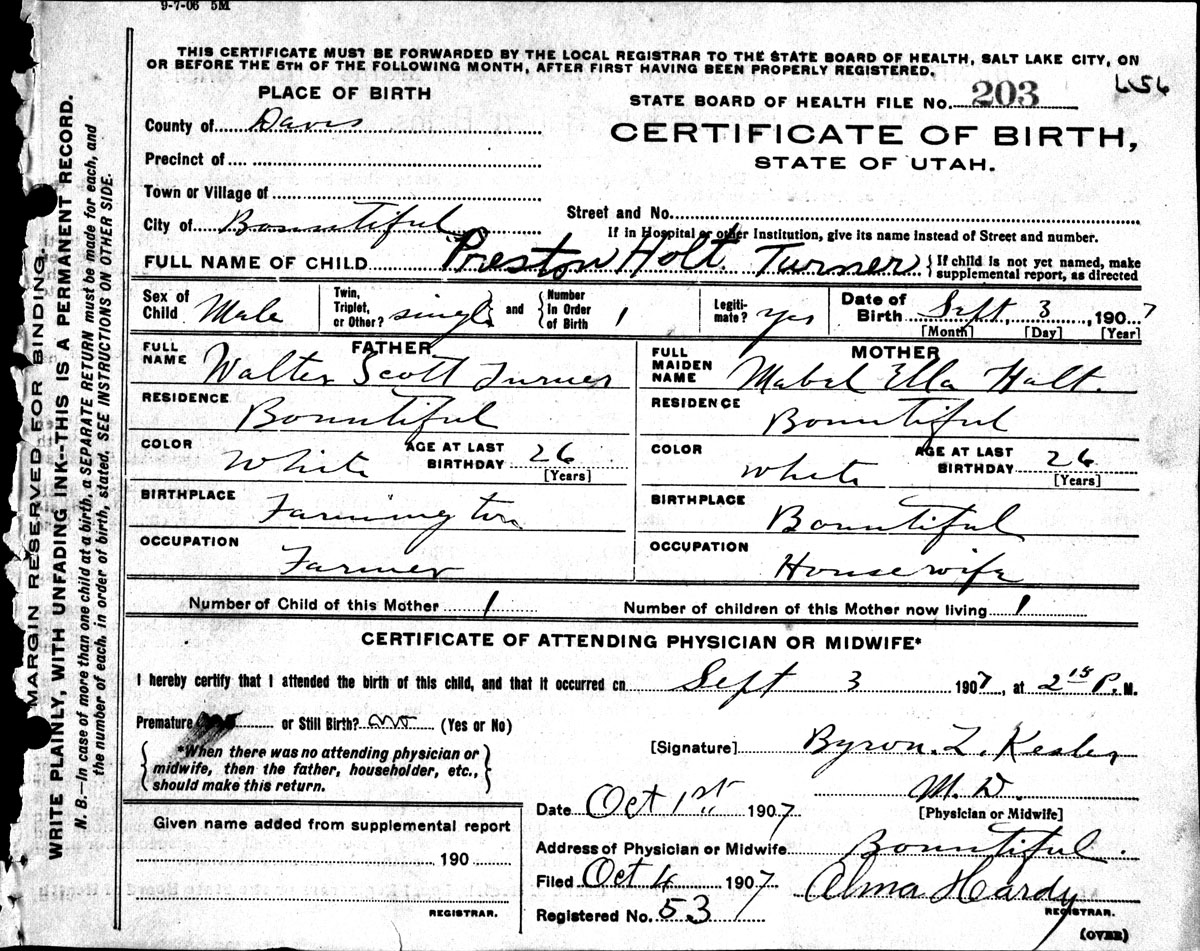 9-7-06 5M
THIS CERTIFICATE MUST BE FORWARDED BY THE LOCAL REGISTRAR TO THE STATE BOARD OF HEALTH, SALT LAKE CITY, ON
OR BEFORE THE 5TH OF THE FOLLOWING MONTH, AFTER FIRST HAVING BEEN PROPERLY REGISTERED.
PLACE OF BIRTH
STATE BOARD OF HEALTH FILE No. 203
County of Davis
CERTIFICATE OF BIRTH,
STATE OF UTAH.
Precinct of
Town or Village of
Street and No.
City of Bountiful
If in Hospital or other Institution, give its name instead of Street and number.
FULL NAME OF CHILD Preston Holt Turner { If child is not yet named, make
supplemental report, as directed
Sex of Child Male
Twin, Triplet, or Other? single } and { Number In Order of Birth 1
Legiti-mate? yes
Date of Birth Sept 3, 1907
[Month] [Day] [Year]
FATHER
FULL NAME Walter Scott Turner
RESIDENCE Bountiful
COLOR White AGE AT LAST BIRTHDAY 26
[Years]
BIRTHPLACE Farmington
OCCUPATION Farmer
MOTHER
FULL MAIDEN NAME Mabel Ella Holt.
RESIDENCE Bountiful
COLOR White AGE AT LAST BIRTHDAY 26
[Years]
BIRTHPLACE Bountiful
OCCUPATION Housewife
Number of Child of this Mother 1 Number of children of this Mother now living 1
CERTIFICATE OF ATTENDING PHYSICIAN OR MIDWIFE*
I hereby certify that I attended the birth of this child, and that it occurred on Sept 3 1907, at 2 15 P. M.
Premature or Still Birth? no (Yes or No)
{ *When there was no attending physician or
midwife, then the father, householder, etc.,
should make this return. }
[Signature] Byron. L. Kesler
M. D.
[Physician or Midwife]
Date Oct 1st 1907
Given name added from supplemental report
190
REGISTRAR.
Address of Physician or Midwife Bountiful.
Filed Oct 4 1907 Alma Hardy
REGISTRAR.
Registered No. 53
(OVER)
MARGIN RESERVED FOR BINDING.
WRITE PLAINLY, WITH UNFADING INK--THIS IS A PERMANENT RECORD.
N. B.—In case of more than one child at a birth, a SEPARATE RETURN must be made for each, and
the number of each, in order of birth, stated, SEE INSTRUCTIONS ON OTHER SIDE.